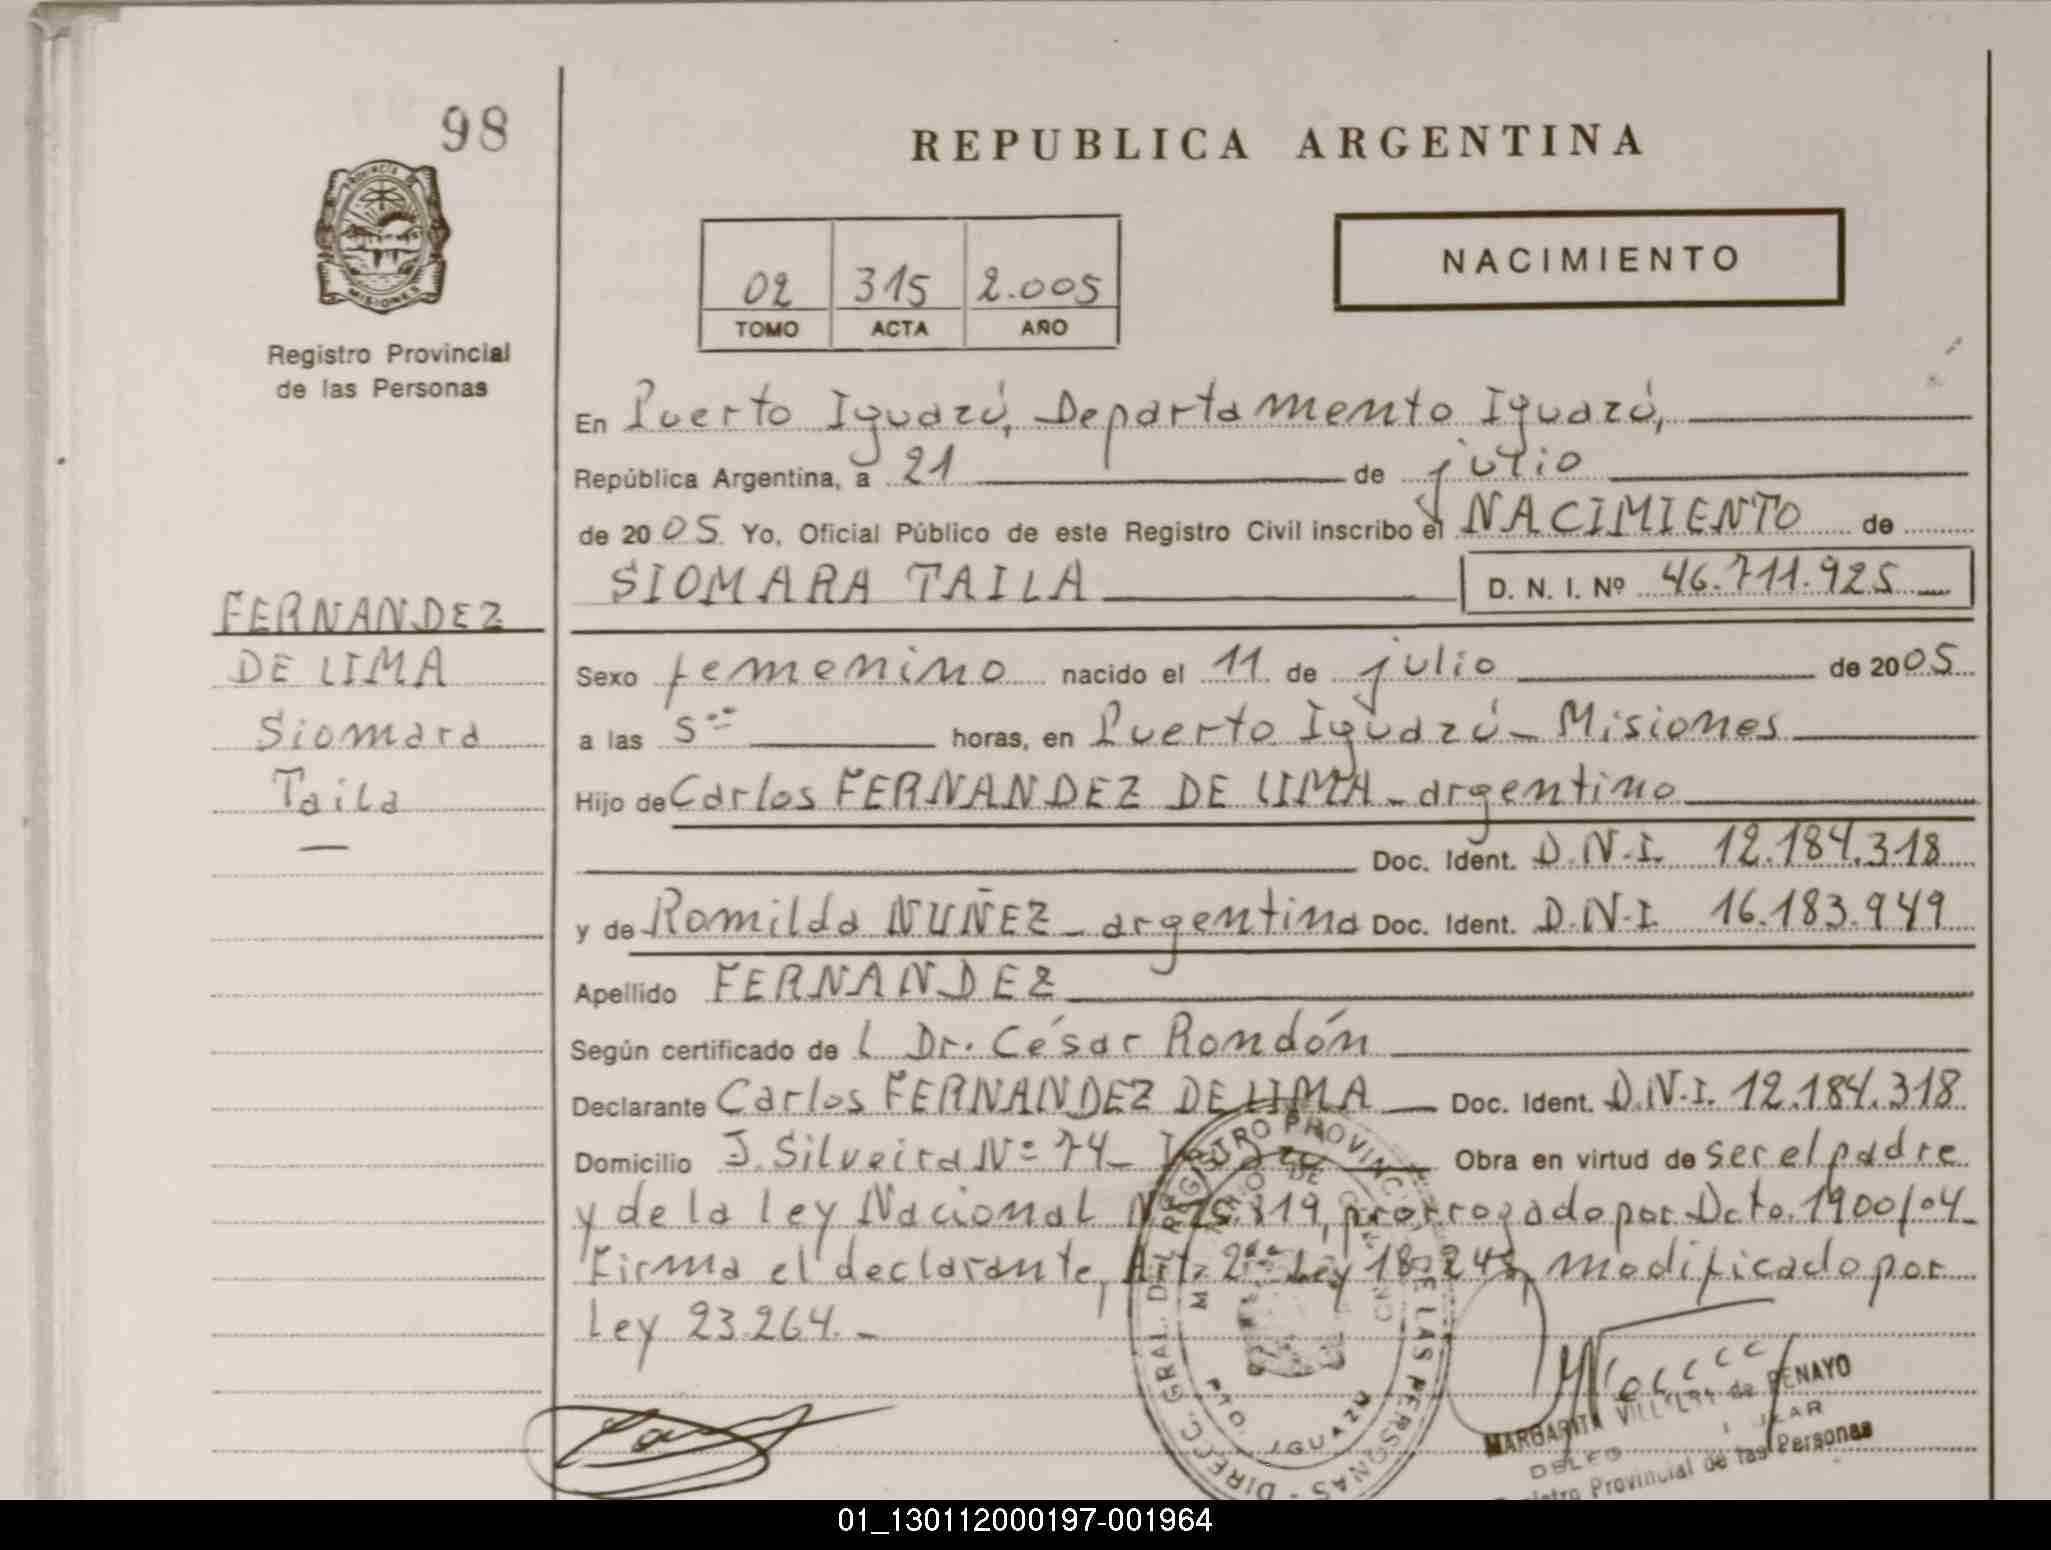 98
REPUBLICA ARGENTINA
PROVINCIA DE
MISIONES
NACIMIENTO
02 315 2.005
TOMO ACTA AÑO
Registro Provincial
de las Personas
En Puerto Iguazú, Departamento Iguazú,
República Argentina, a 21 de julio
de 2005 Yo, Oficial Público de este Registro Civil inscribo el NACIMIENTO de
SIOMARA TAILA D. N. I. Nº 46.711.925
FERNANDEZ
DE LIMA
Siomara
Taila
Sexo femenino nacido el 11 de julio de 2005
a las 5 horas, en Puerto Iguazú - Misiones
Hijo de Carlos FERNANDEZ DE LIMA - argentino
Doc. Ident. D.N.I. 12.184.318
y de Romilda NUÑEZ - argentina Doc. Ident. D.N.I. 16.183.949
Apellido FERNANDEZ
Según certificado de l Dr. César Rondón
Declarante Carlos FERNANDEZ DE LIMA Doc. Ident. D.N.I. 12.184.318
Domicilio J. Silveira Nº 74 - Obra en virtud de ser el padre
y de la ley Nacional prorrogado por Dcto. 1900/04 -
Firma el declarante, Art. 2 Ley 18.248, modificado por
Ley 23.264. -
DIRECC. GRAL. DEL REGISTRO PROVINCIAL DE LAS PERSONAS -
PTO. IGUAZU
MARGARITA de PENAYO
Provincial de las Personas
01_130112000197-001964